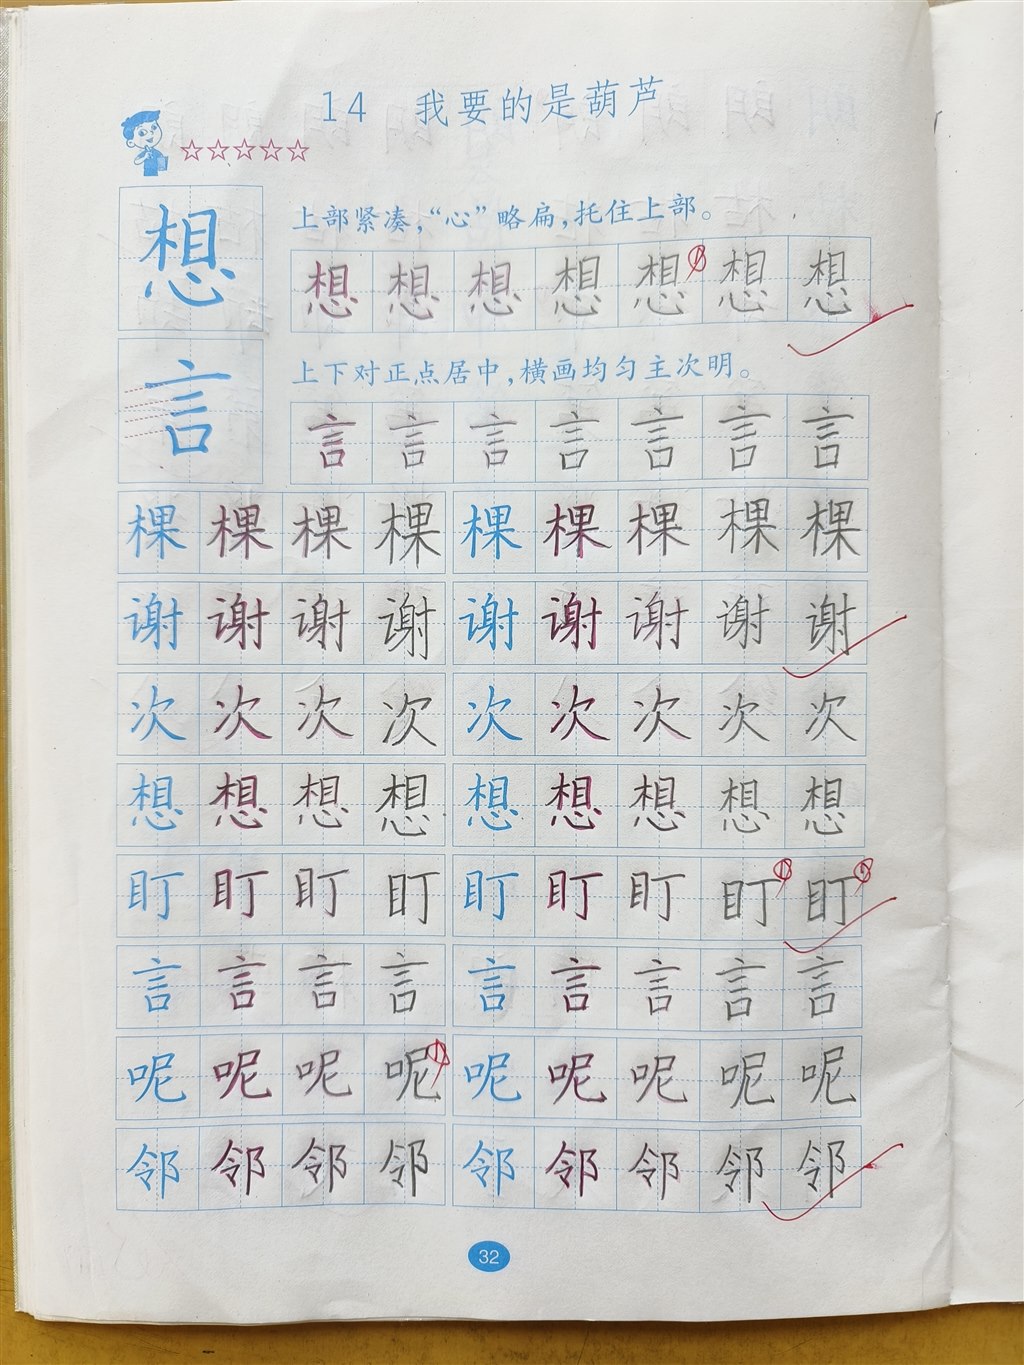 14 我要的是葫芦
☆☆☆☆☆
想
上部紧凑，“心”略扁，托住上部。
想 想 想 想 想 想 想
言
上下对正点居中，横画均匀主次明。
言 言 言 言 言 言 言
棵 棵 棵 棵 棵 棵 棵 棵 棵
谢 谢 谢 谢 谢 谢 谢 谢 谢
次 次 次 次 次 次 次 次 次
想 想 想 想 想 想 想 想 想
盯 盯 盯 盯 盯 盯 盯 盯 盯
言 言 言 言 言 言 言 言 言
呢 呢 呢 呢 呢 呢 呢 呢 呢
邻 邻 邻 邻 邻 邻 邻 邻 邻
32